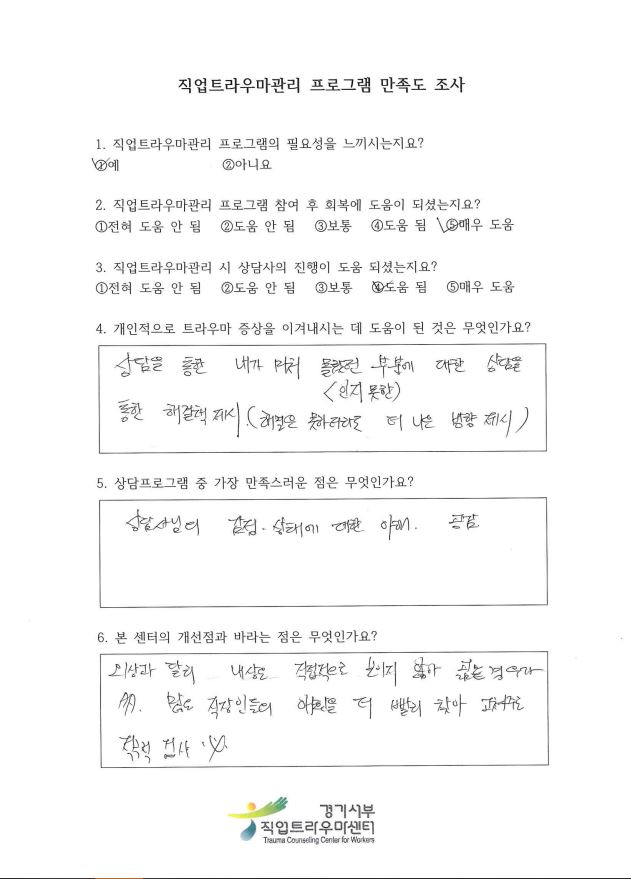 직업트라우마관리 프로그램 만족도 조사
1. 직업트라우마관리 프로그램의 필요성을 느끼시는지요?
①예 ②아니요
2. 직업트라우마관리 프로그램 참여 후 회복에 도움이 되셨는지요?
①전혀 도움 안 됨 ②도움 안 됨 ③보통 ④도움 됨 ⑤매우 도움
3. 직업트라우마관리 시 상담사의 진행이 도움 되셨는지요?
①전혀 도움 안 됨 ②도움 안 됨 ③보통 ④도움 됨 ⑤매우 도움
4. 개인적으로 트라우마 증상을 이겨내시는 데 도움이 된 것은 무엇인가요?
상담을 통한 내가 미처 몰랐던 부분에 대한 상담을
<인지 못한>
통한 해결책 제시. (해결은 못하더라도 더 나은 방향 제시)
5. 상담프로그램 중 가장 만족스러운 점은 무엇인가요?
상담사님의 감정·상태에 대한 이해. 공감
6. 본 센터의 개선점과 바라는 점은 무엇인가요?
외상과 달리 내상은 직접적으로 보이지 않아 곪는 경우가
많은 직장인들의 더 빨리 찾아
검사
경기서부
직업트라우마센터
Trauma Counseling Center for Workers